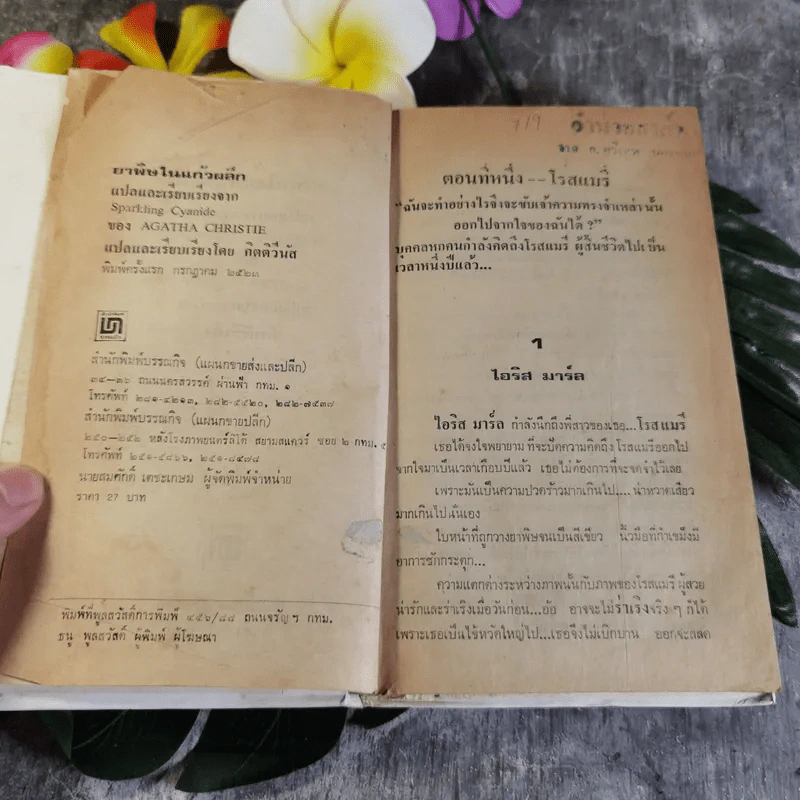 ยาพิษในแก้วผลึก
แปลและเรียบเรียงจาก
Sparkling Cyanide
ของ AGATHA CHRISTIE
แปลและเรียบเรียงโดย กิตติวีนัส
พิมพ์ครั้งแรก กรกฎาคม ๒๕๒๓
สำนักพิมพ์บรรณกิจ (แผนกขายส่งและปลีก)
๓๔–๓๖ ถนนนครสวรรค์ ผ่านฟ้า กทม. ๑
โทรศัพท์ ๒๘๑-๔๒๑๓, ๒๘๒-๕๕๒๐, ๒๘๒-๗๕๓๗
สำนักพิมพ์บรรณกิจ (แผนกขายปลีก)
๒๕๐–๒๕๒ หลังโรงภาพยนตร์ลิโด้ สยามสแควร์ ซอย ๒ กทม. ๕
โทรศัพท์ ๒๕๑-๕๘๖๖, ๒๕๑-๘๔๗๘
นายสมศักดิ์ เตชะเกษม ผู้จัดพิมพ์จำหน่าย
ราคา 27 บาท
พิมพ์ที่พูลสวัสดิ์การพิมพ์ ๔๕๖/๘๘ ถนนจรัญฯ กทม.
ธนู พูลสวัสดิ์ ผู้พิมพ์ ผู้โฆษณา
719
ตอนที่หนึ่ง -- โรสแมรี่
“ฉันจะทำอย่างไรจึงจะขับเจ้าความทรงจำเหล่านั้น
ออกไปจากใจของฉันได้ ?”
บุคคลหกคนกำลังคิดถึงโรสแมรี่ ผู้สิ้นชีวิตไปเป็น
เวลาหนึ่งปีแล้ว...
1
ไอริส มาร์ล
ไอริส มาร์ล กำลังนึกถึงพี่สาวของเธอ...โรสแมรี่
เธอได้จงใจพยายาม ที่จะปัดความคิดถึง โรสแมรี่ออกไป
จากใจมาเป็นเวลาเกือบปีแล้ว เธอไม่ต้องการที่จะจดจำไว้เลย
เพราะมันเป็นความปวดร้าวมากเกินไป.... น่าหวาดเสียว
มากเกินไปนั่นเอง
ใบหน้าที่ถูกวางยาพิษจนเป็นสีเขียว นิ้วมือที่กำเขม็งมี
อาการชักกระตุก...
ความแตกต่างระหว่างภาพนั้นกับภาพของโรสแมรี่ ผู้สวย
น่ารักและร่าเริงเมื่อวันก่อน...อ้อ อาจจะไม่ร่าเริงจริง ๆ ก็ได้
เพราะเธอเป็นไข้หวัดใหญ่ไป...เธอจึงไม่เบิกบาน ออกจะสลด